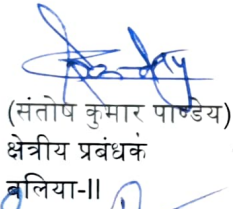 (संतोष कुमार पाण्डेय)
क्षेत्रीय प्रबंधक
बलिया-II